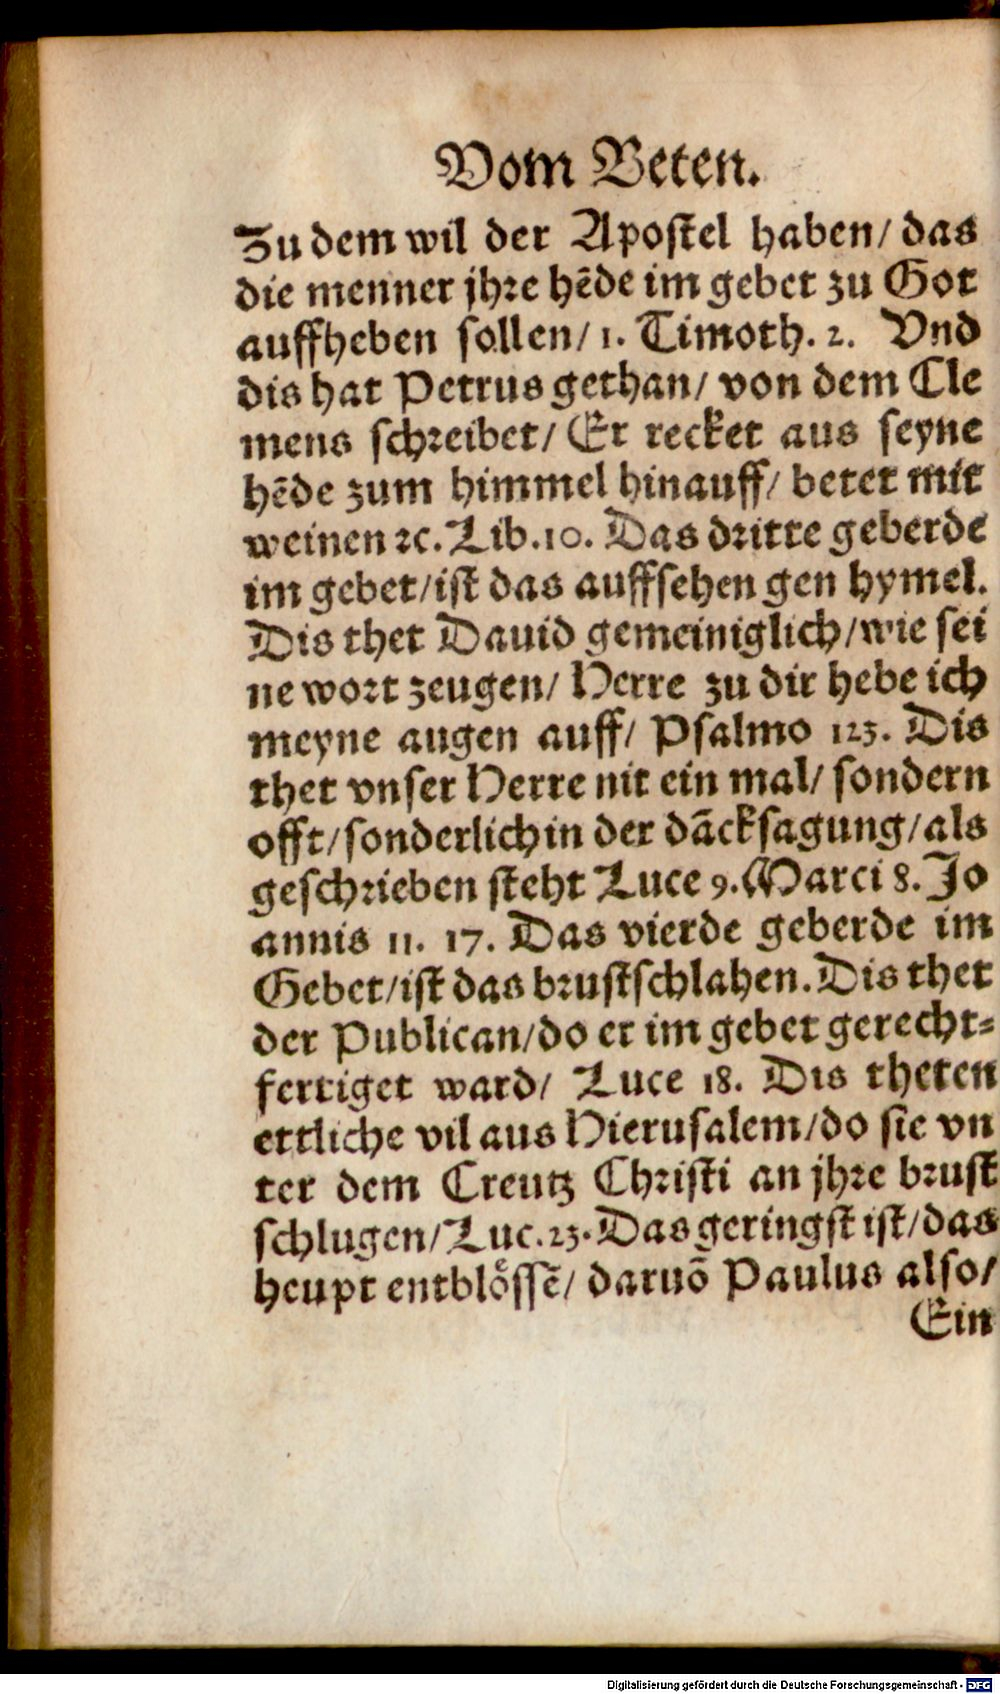 Vom Beten.
Zu dem wil der Apostel haben/ das
die menner jhre hēde im gebet zu Got
auffheben sollen/ 1. Timoth. 2. Vnd
dis hat Petrus gethan/ von dem Cle
mens schreibet/ Er recket aus seyne
hēde zum himmel hinauff/ betet mit
weinen ꝛc. Lib. 10. Das dritte geberde
im gebet/ ist das auffsehen gen hymel.
Dis thet Dauid gemeiniglich/ wie sei
ne wort zeugen/ Herre zu dir hebe ich
meyne augen auff/ Psalmo 123. Dis
thet vnser Herre nit ein mal/ sondern
offt/ sonderlich in der dācksagung/ als
geschrieben steht Luce 9. Marci 8. Jo
annis 11. 17. Das vierde geberde im
Gebet/ ist das brustschlahen. Dis thet
der Publican/ do er im gebet gerecht⸗
fertiget ward/ Luce 18. Dis theten
ettliche vil aus Hierusalem/ do sie vn
ter dem Creutz Christi an jhre brust
schlugen/ Luc. 23. Das geringst ist/ das
heupt entblössē/ daruō Paulus also/
Ein
Digitalisierung gefördert durch die Deutsche Forschungsgemeinschaft - DFG